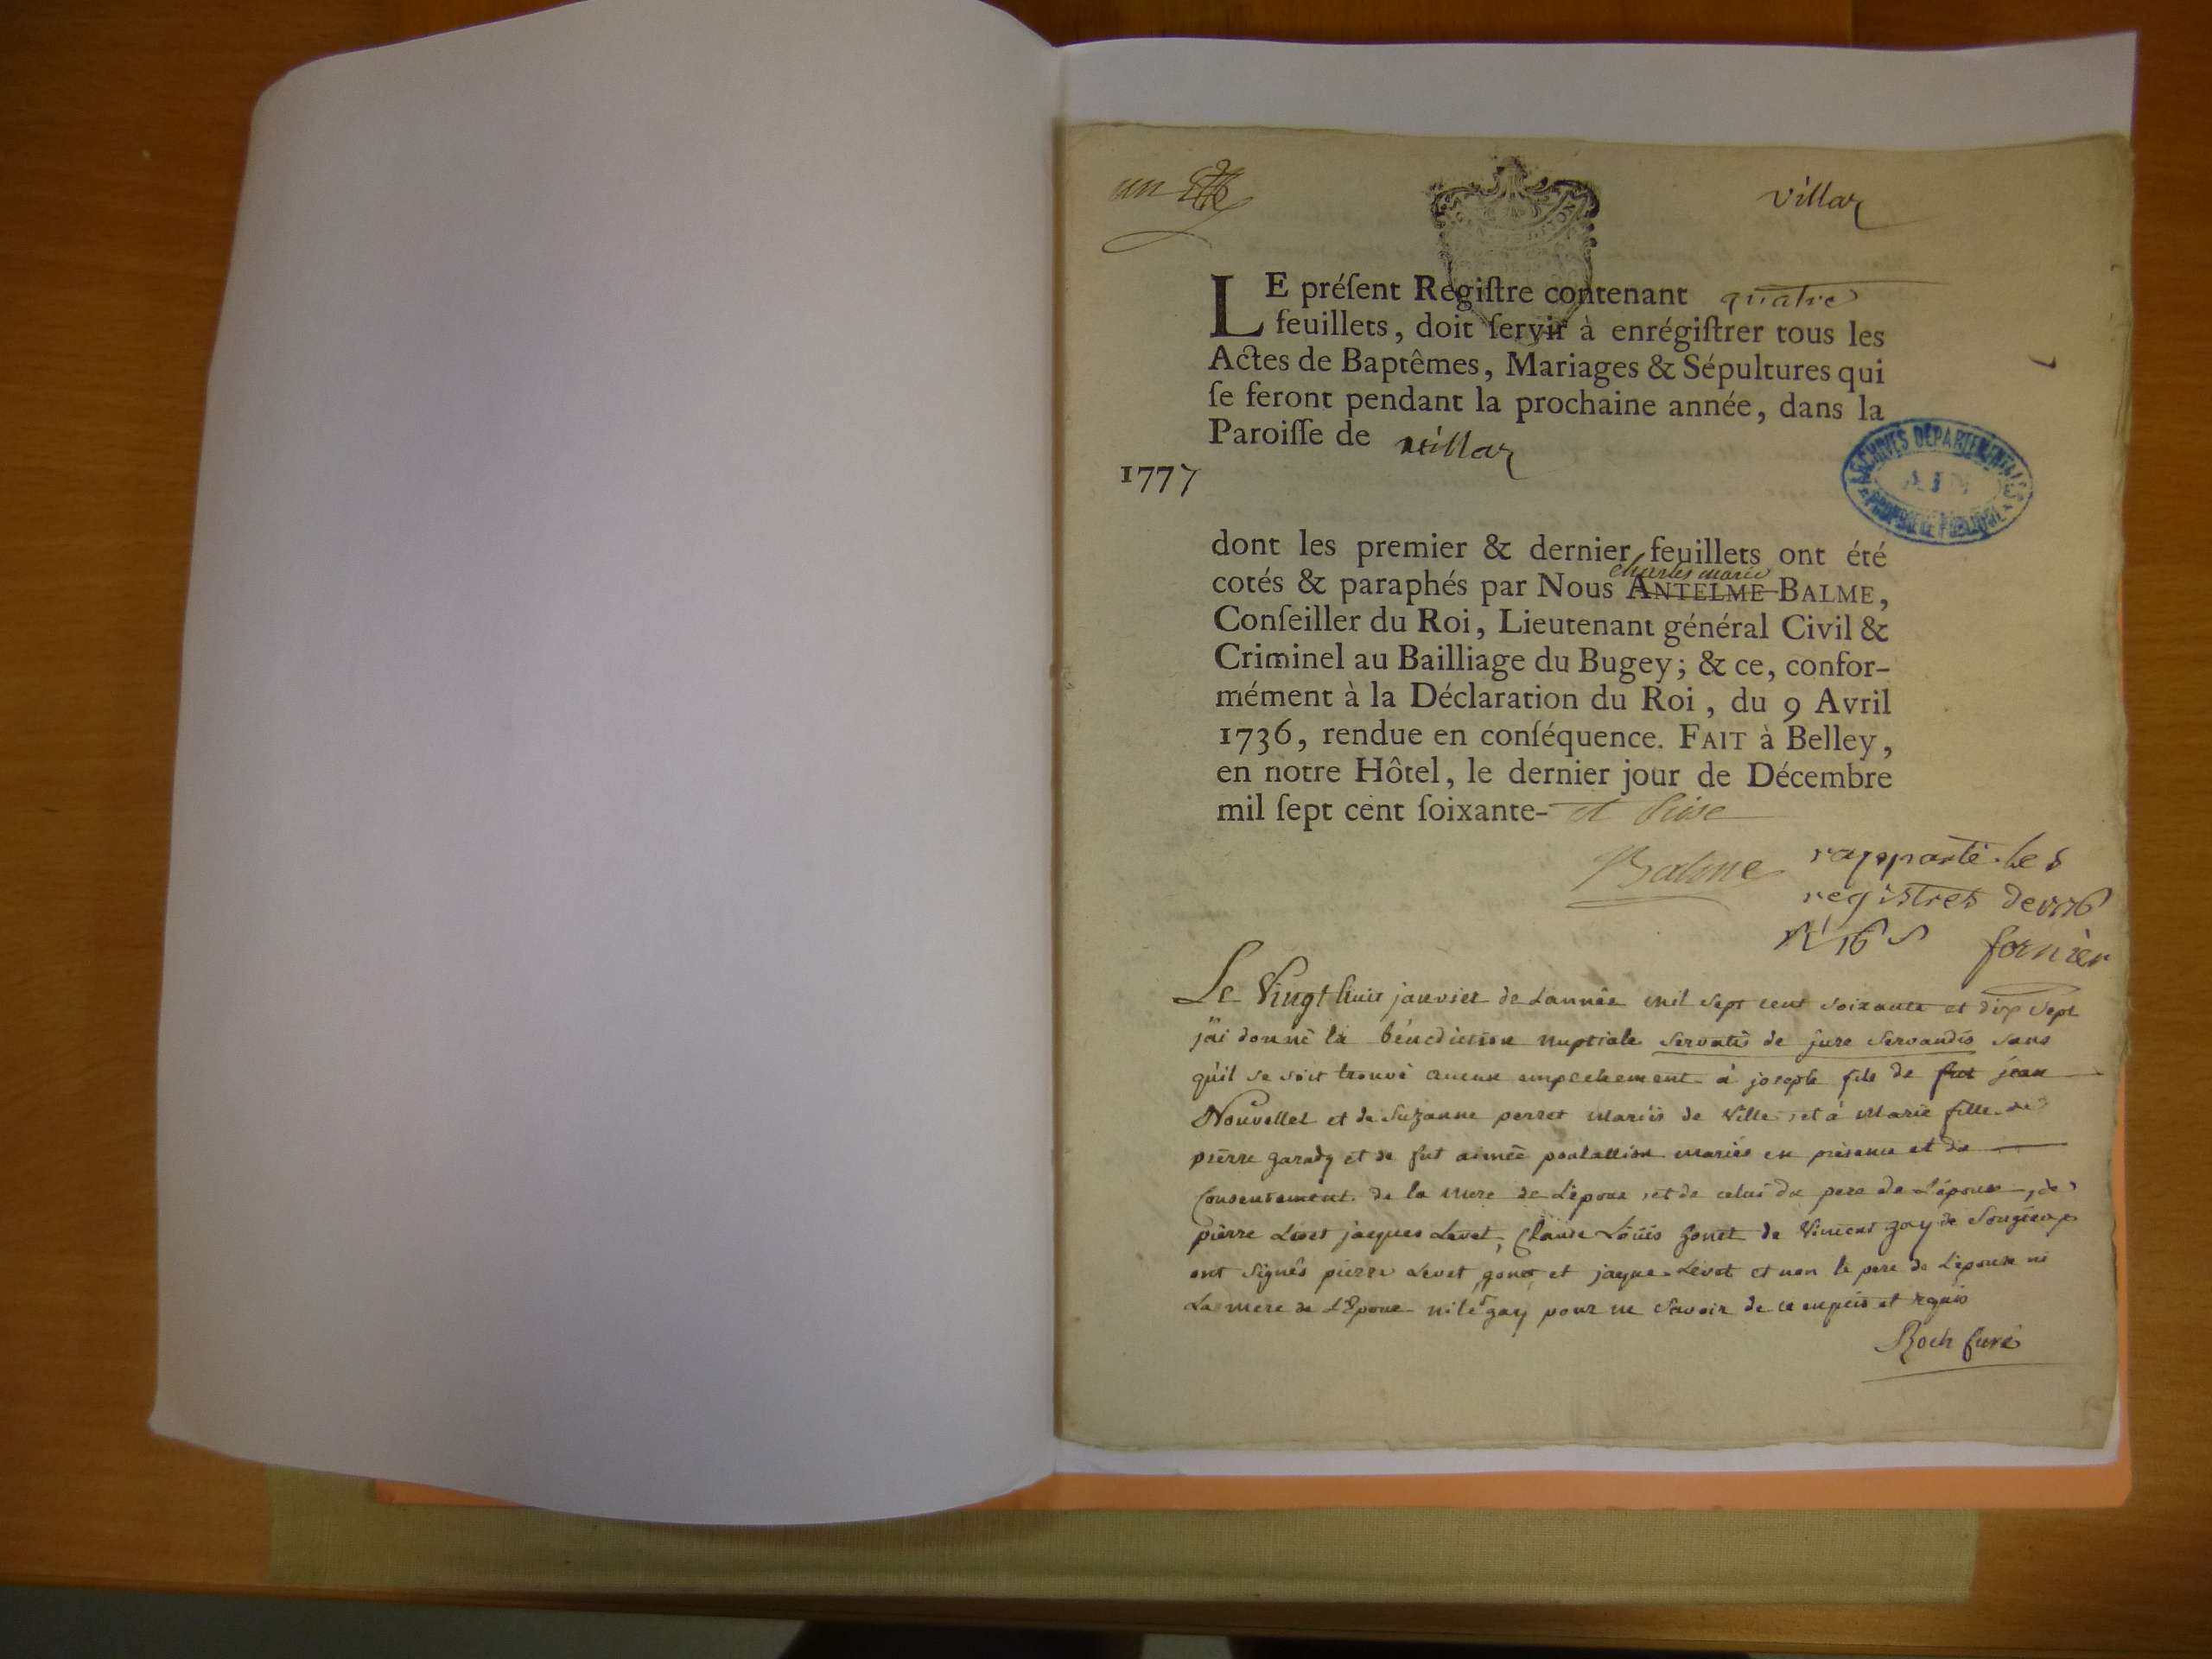 un
villar
LE préſent Regiſtre contenant quatre
feuillets, doit ſervir à enrégiſtrer tous les
Actes de Baptêmes, Mariages & Sépultures qui
ſe feront pendant la prochaine année, dans la
Paroiſſe de villar
1777
ARCHIVES DÉPARTEMENTALES
AIN
PROPRIÉTÉ PUBLIQUE
dont les premier & dernier feuillets ont été
charles marie
cotés & paraphés par Nous ANTELME BALME,
Conſeiller du Roi, Lieutenant général Civil &
Criminel au Bailliage du Bugey; & ce, confor-
mément à la Déclaration du Roi, du 9 Avril
1736, rendue en conſéquence. FAIT à Belley,
en notre Hôtel, le dernier jour de Décembre
mil ſept cent ſoixante- et seise
Balme
rapporté les
registres de 1776
fornier
Le Vingt huit janvier de Lannée mil sept cent soixante et dix sept
j'ai donné la bénediction nuptiale servatis de jure servandis sans
qu'il se soit trouvé aucun empechement à joseph fils de fut jean
Nouvellet et de Suzanne perret mariés de Ville, et à Marie fille de
pierre garady et de fut aimée mariés en présence et du
Consentement de la mere de L'epoux, et de celui du pere de L'épouse, de
pierre Levet jacques Levet, Claude Loüis gonet de Vincent gay de
ont signés pierre Levet, gonet et jaque Levet et non le pere de L'epouse ni
La mere de L'Epoux ni le gay pour ne savoir de ce enquis et requis
Roch Curé